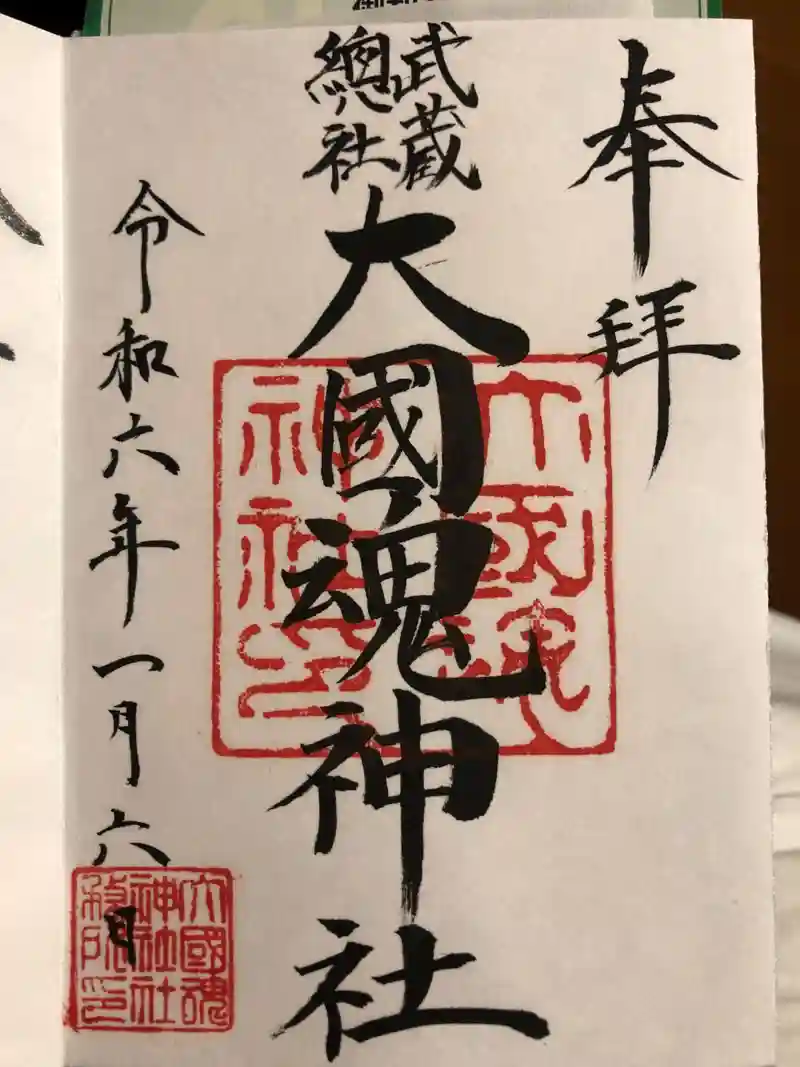 奉拝
武蔵
總社
大國魂神社
大國魂
神社印
令和六年一月六日
大國魂
神社社